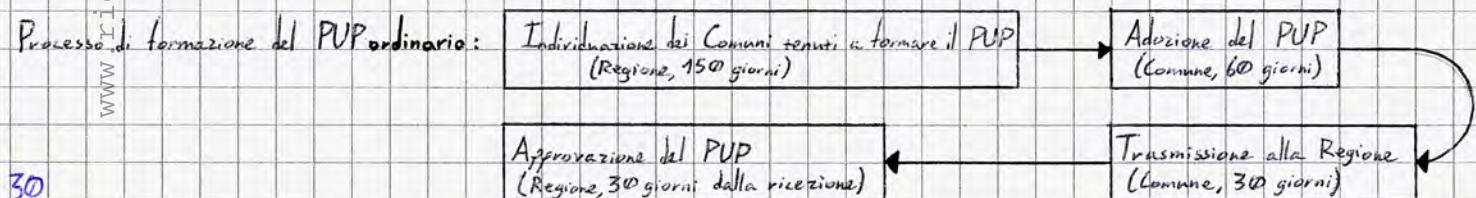 Processo di formazione del PUP ordinario:
Individuazione dei Comuni tenuti a formare il PUP
(Regione, 150 giorni)
Adozione del PUP
(Comune, 60 giorni)
Trasmissione alla Regione
(Comune, 30 giorni)
Approvazione del PUP
(Regione, 30 giorni dalla ricezione)
30
www.ric